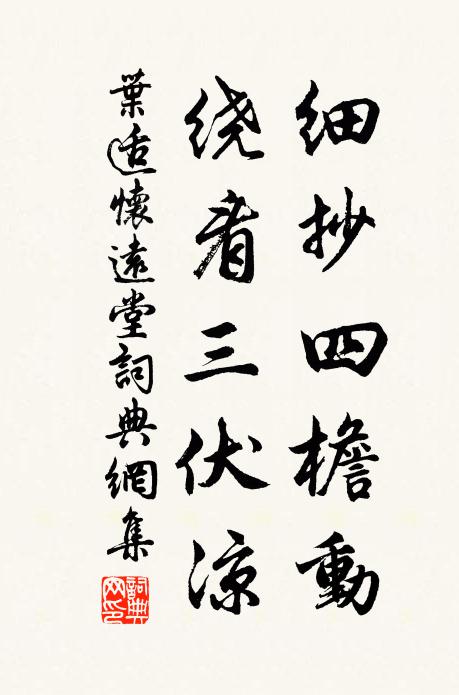 细抄四檐動
绕看三伏凉
葉适懷遠堂詞典網集
詞典网印